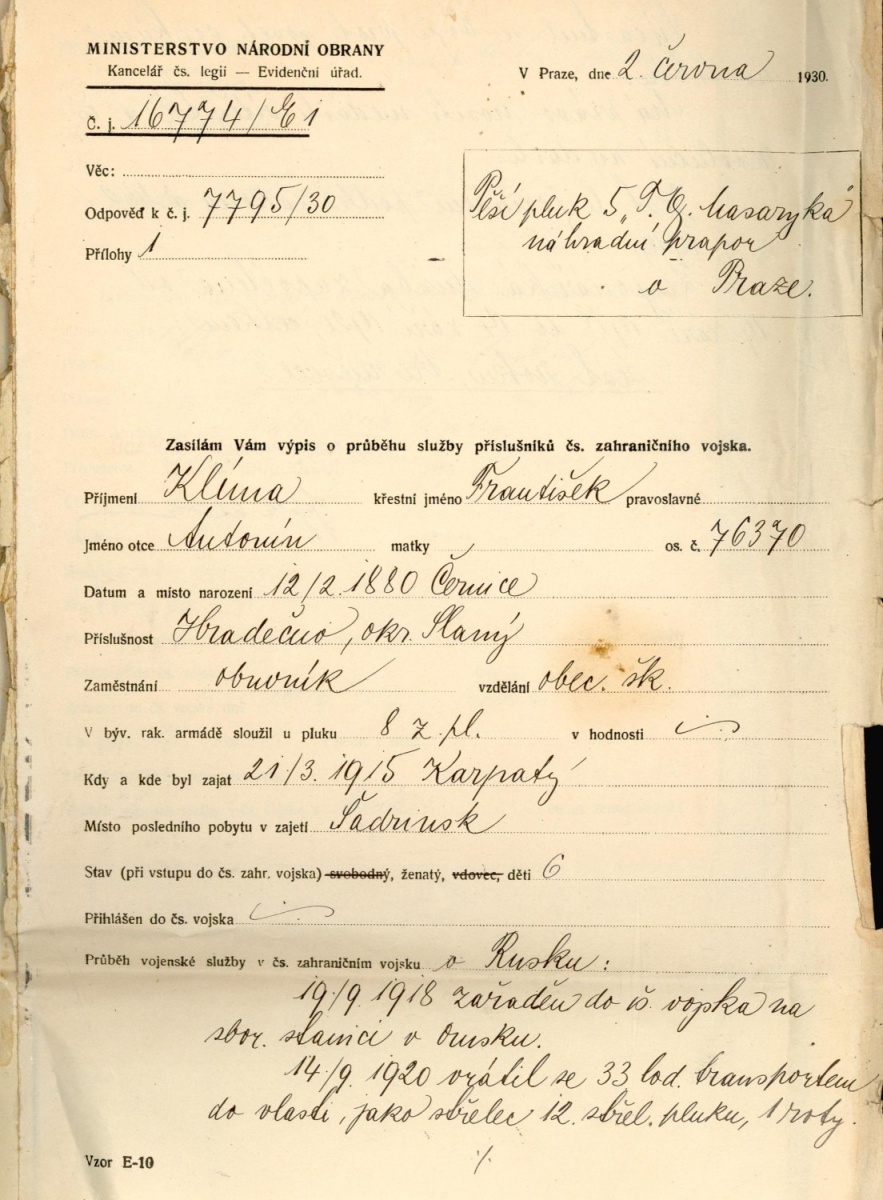 MINISTERSTVO NÁRODNÍ OBRANY
Kancelář čs. legií — Evidenční úřad.
V Praze, dne 2. června 1930.
Č. j. 16774/E1
Věc:
Odpověď k č. j. 7795/30
Přílohy 1
Pěší pluk 5 „T. G. Masaryka"
náhradní prapor
v Praze.
Zasílám Vám výpis o průběhu služby příslušníků čs. zahraničního vojska.
Příjmení Klíma křestní jméno František pravoslavné
Jméno otce Antonín matky os. č. 76370
Datum a místo narození 12/2. 1880 Černice
Příslušnost Hradečno, okr. Slaný
Zaměstnání obuvník vzdělání obec. šk.
V býv. rak. armádě sloužil u pluku 8 z. pl. v hodnosti
Kdy a kde byl zajat 21/3. 1915 Karpaty
Místo posledního pobytu v zajetí Šadrinsk
Stav (při vstupu do čs. zahr. vojska) svobodný, ženatý, vdovec, děti 6
Přihlášen do čs. vojska
Průběh vojenské služby v čs. zahraničním vojsku v Rusku:
19/9. 1918 zařaděn do čs. vojska na
sbor. stanici v Omsku.
14/9. 1920 vrátil se 33 lod. transportem
do vlasti, jako střelec 12. střel. pluku, 1 roty.
Vzor E-10
./.